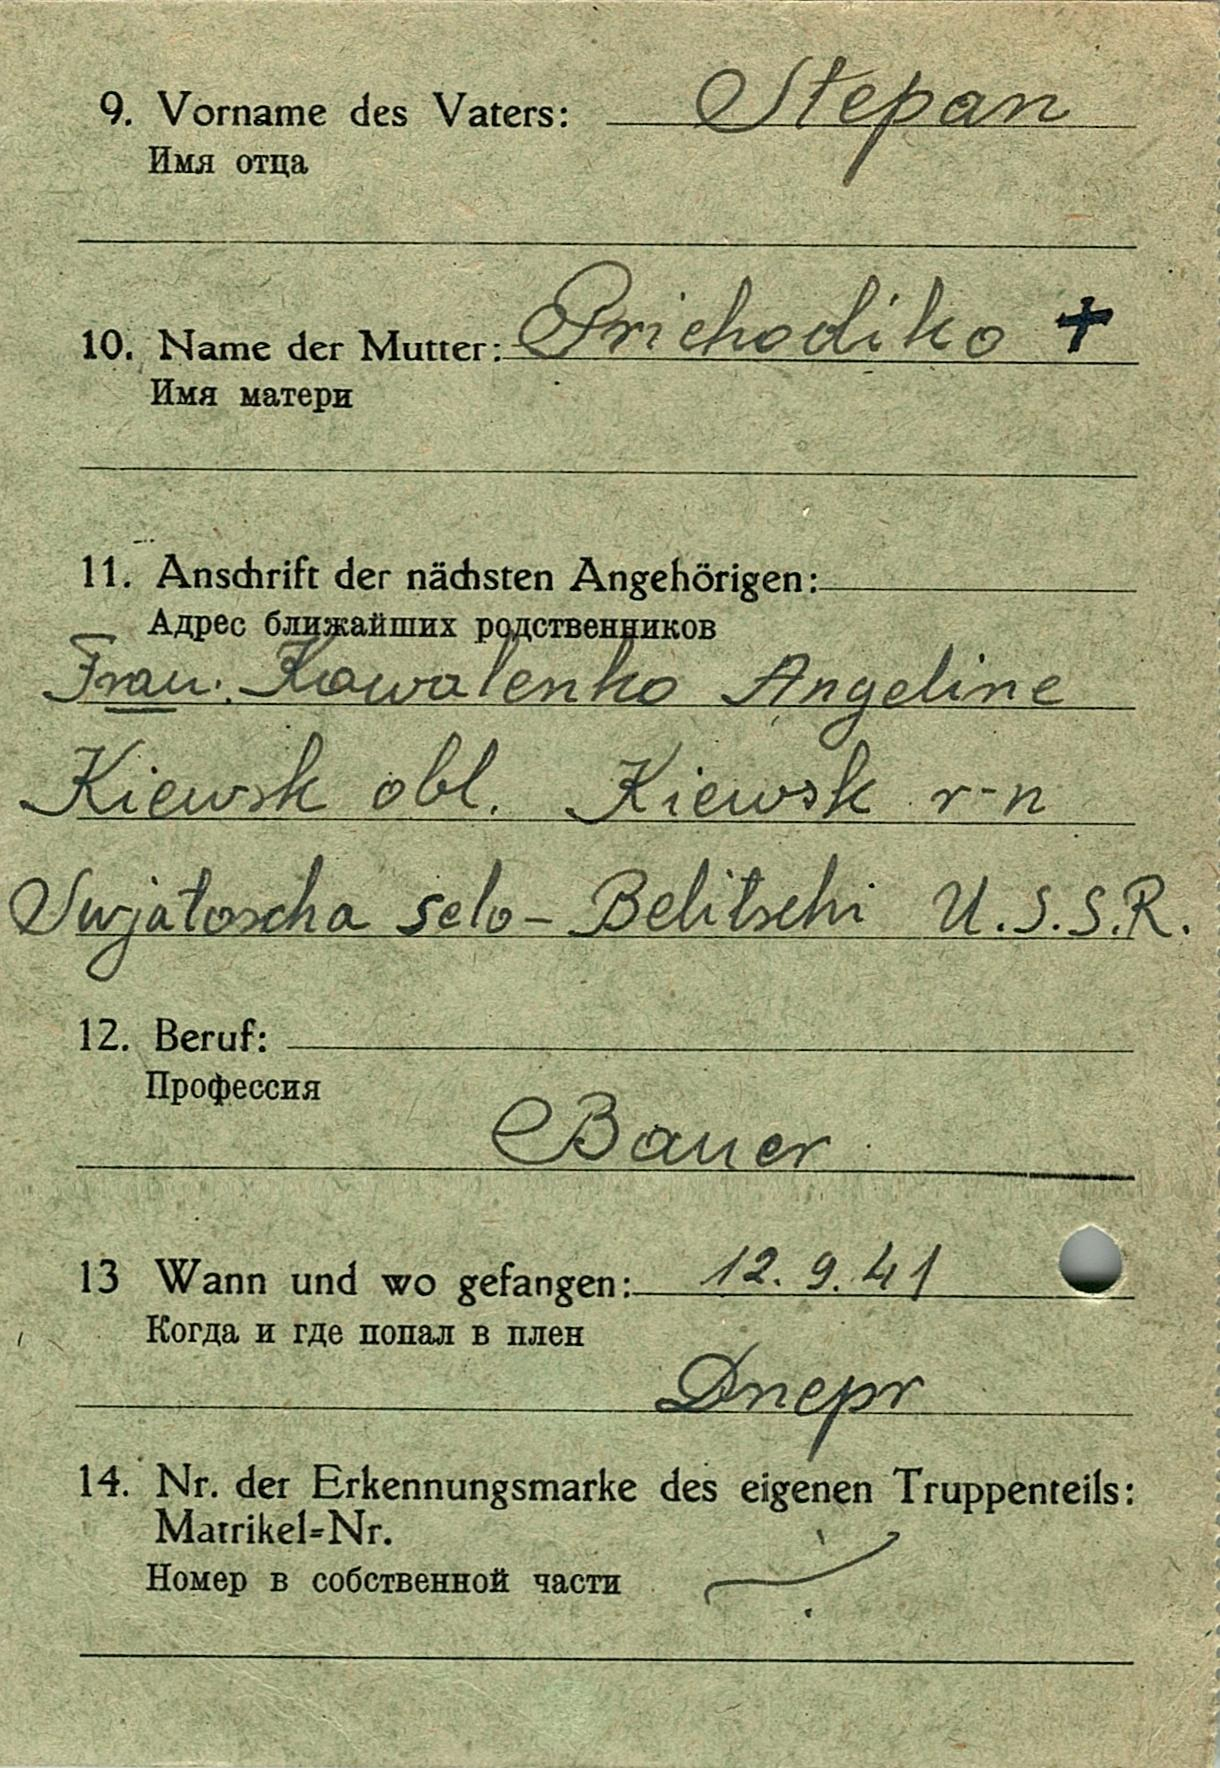 9. Vorname des Vaters: Stepan
Имя отца
10. Name der Mutter: Prichodiko +
Имя матери
11. Anschrift der nächsten Angehörigen:
Адрес ближайших родственников
Frau. Kowalenko Angeline
Kiewsk obl. Kiewsk r-n
Swjatoscha selo - Belitschi U.S.S.R.
12. Beruf:
Профессия
Bauer
13 Wann und wo gefangen: 12.9.41
Когда и где попал в плен
Dnepr
14. Nr. der Erkennungsmarke des eigenen Truppenteils:
Matrikel-Nr.
Номер в собственной части